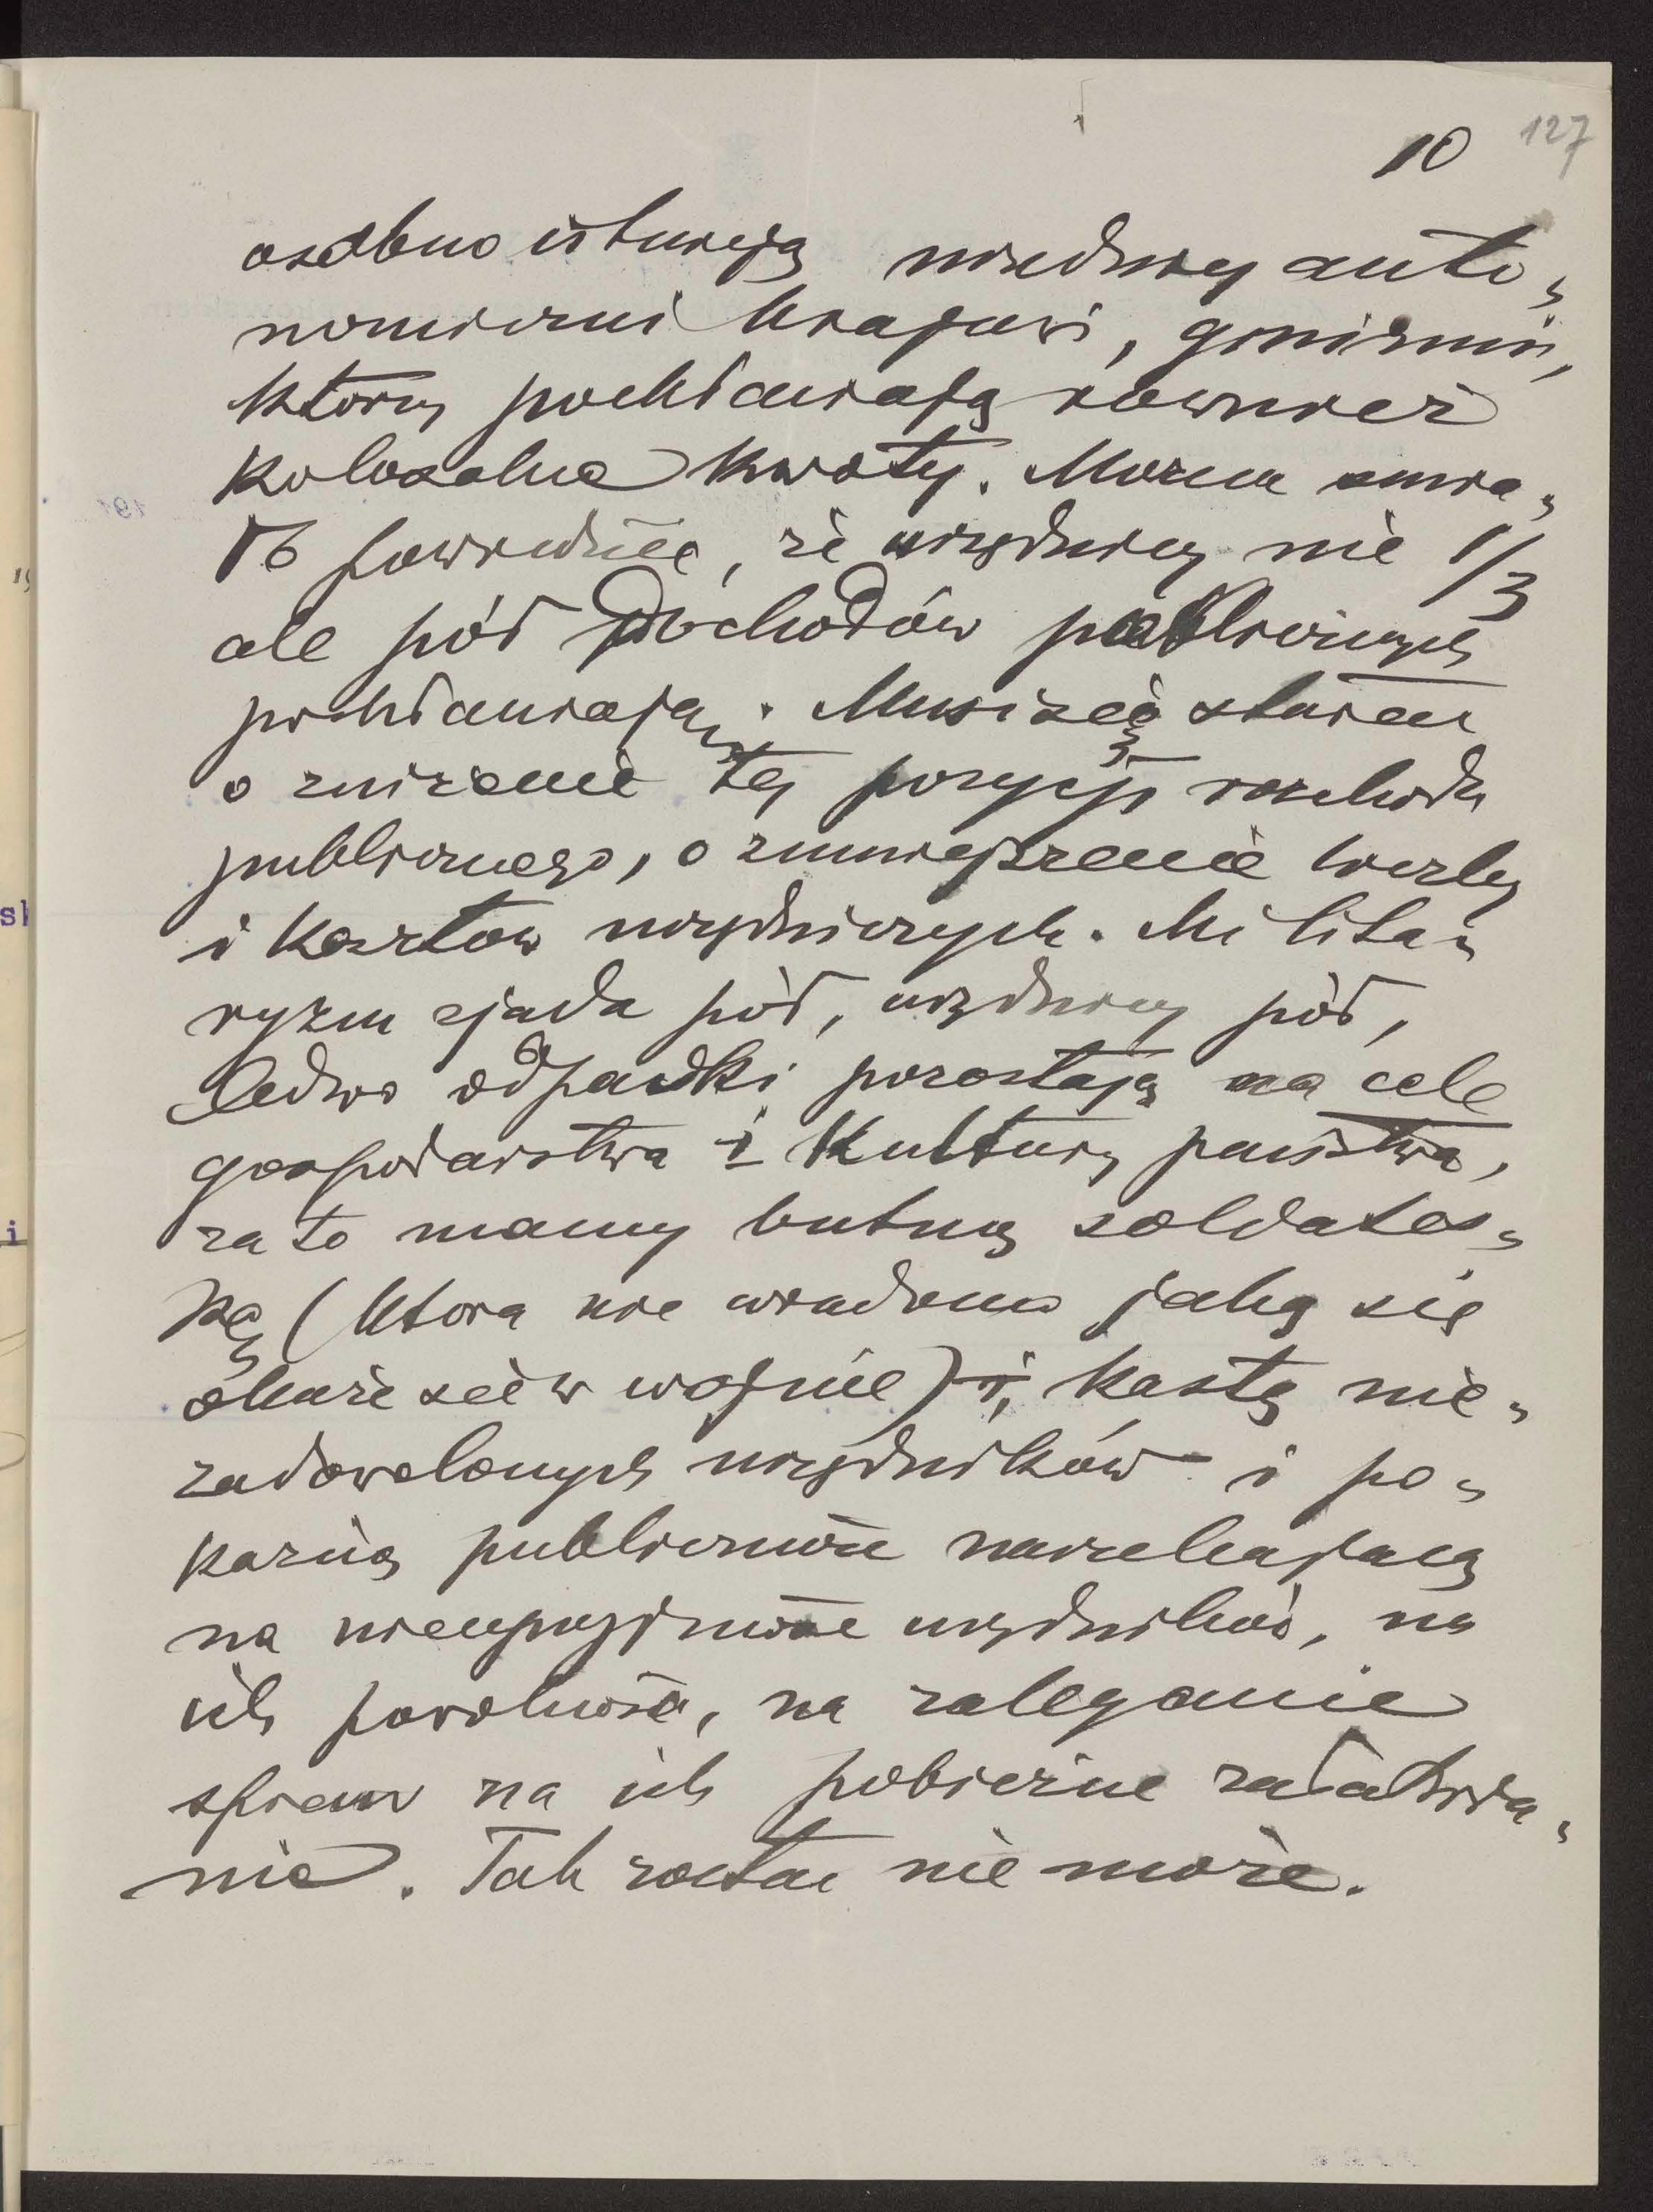 10 127
osobno istnieją urzędnicy auto-
nomiczni krajowi, gminni,
którzy pochłaniają również
kolosalne kwoty. Można śmia-
ło powiedzieć, że urzędnicy nie 1/3
ale pół dochodów publicznych
pochłaniają. Musi się starać
o zniżenie tej pozycji rozchodu
publicznego, o zmniejszenie liczby
i kosztów urzędniczych. Milita-
ryzm zjada pół, urzędnicy pół,
ledwo odpadki pozostają na cele
gospodarstwa i kultury państwa,
za to mamy butną soldates-
kę (która nie wiadomo jaką się
okaże w wojnie), kastę nie-
zadowolonych urzędników i po-
kaźną publiczność narzekającą
na nieuprzejmość urzędników, na
ich powolność, na zaleganie
spraw na ich pobieżne załatwia-
nie. Tak zostać nie może.